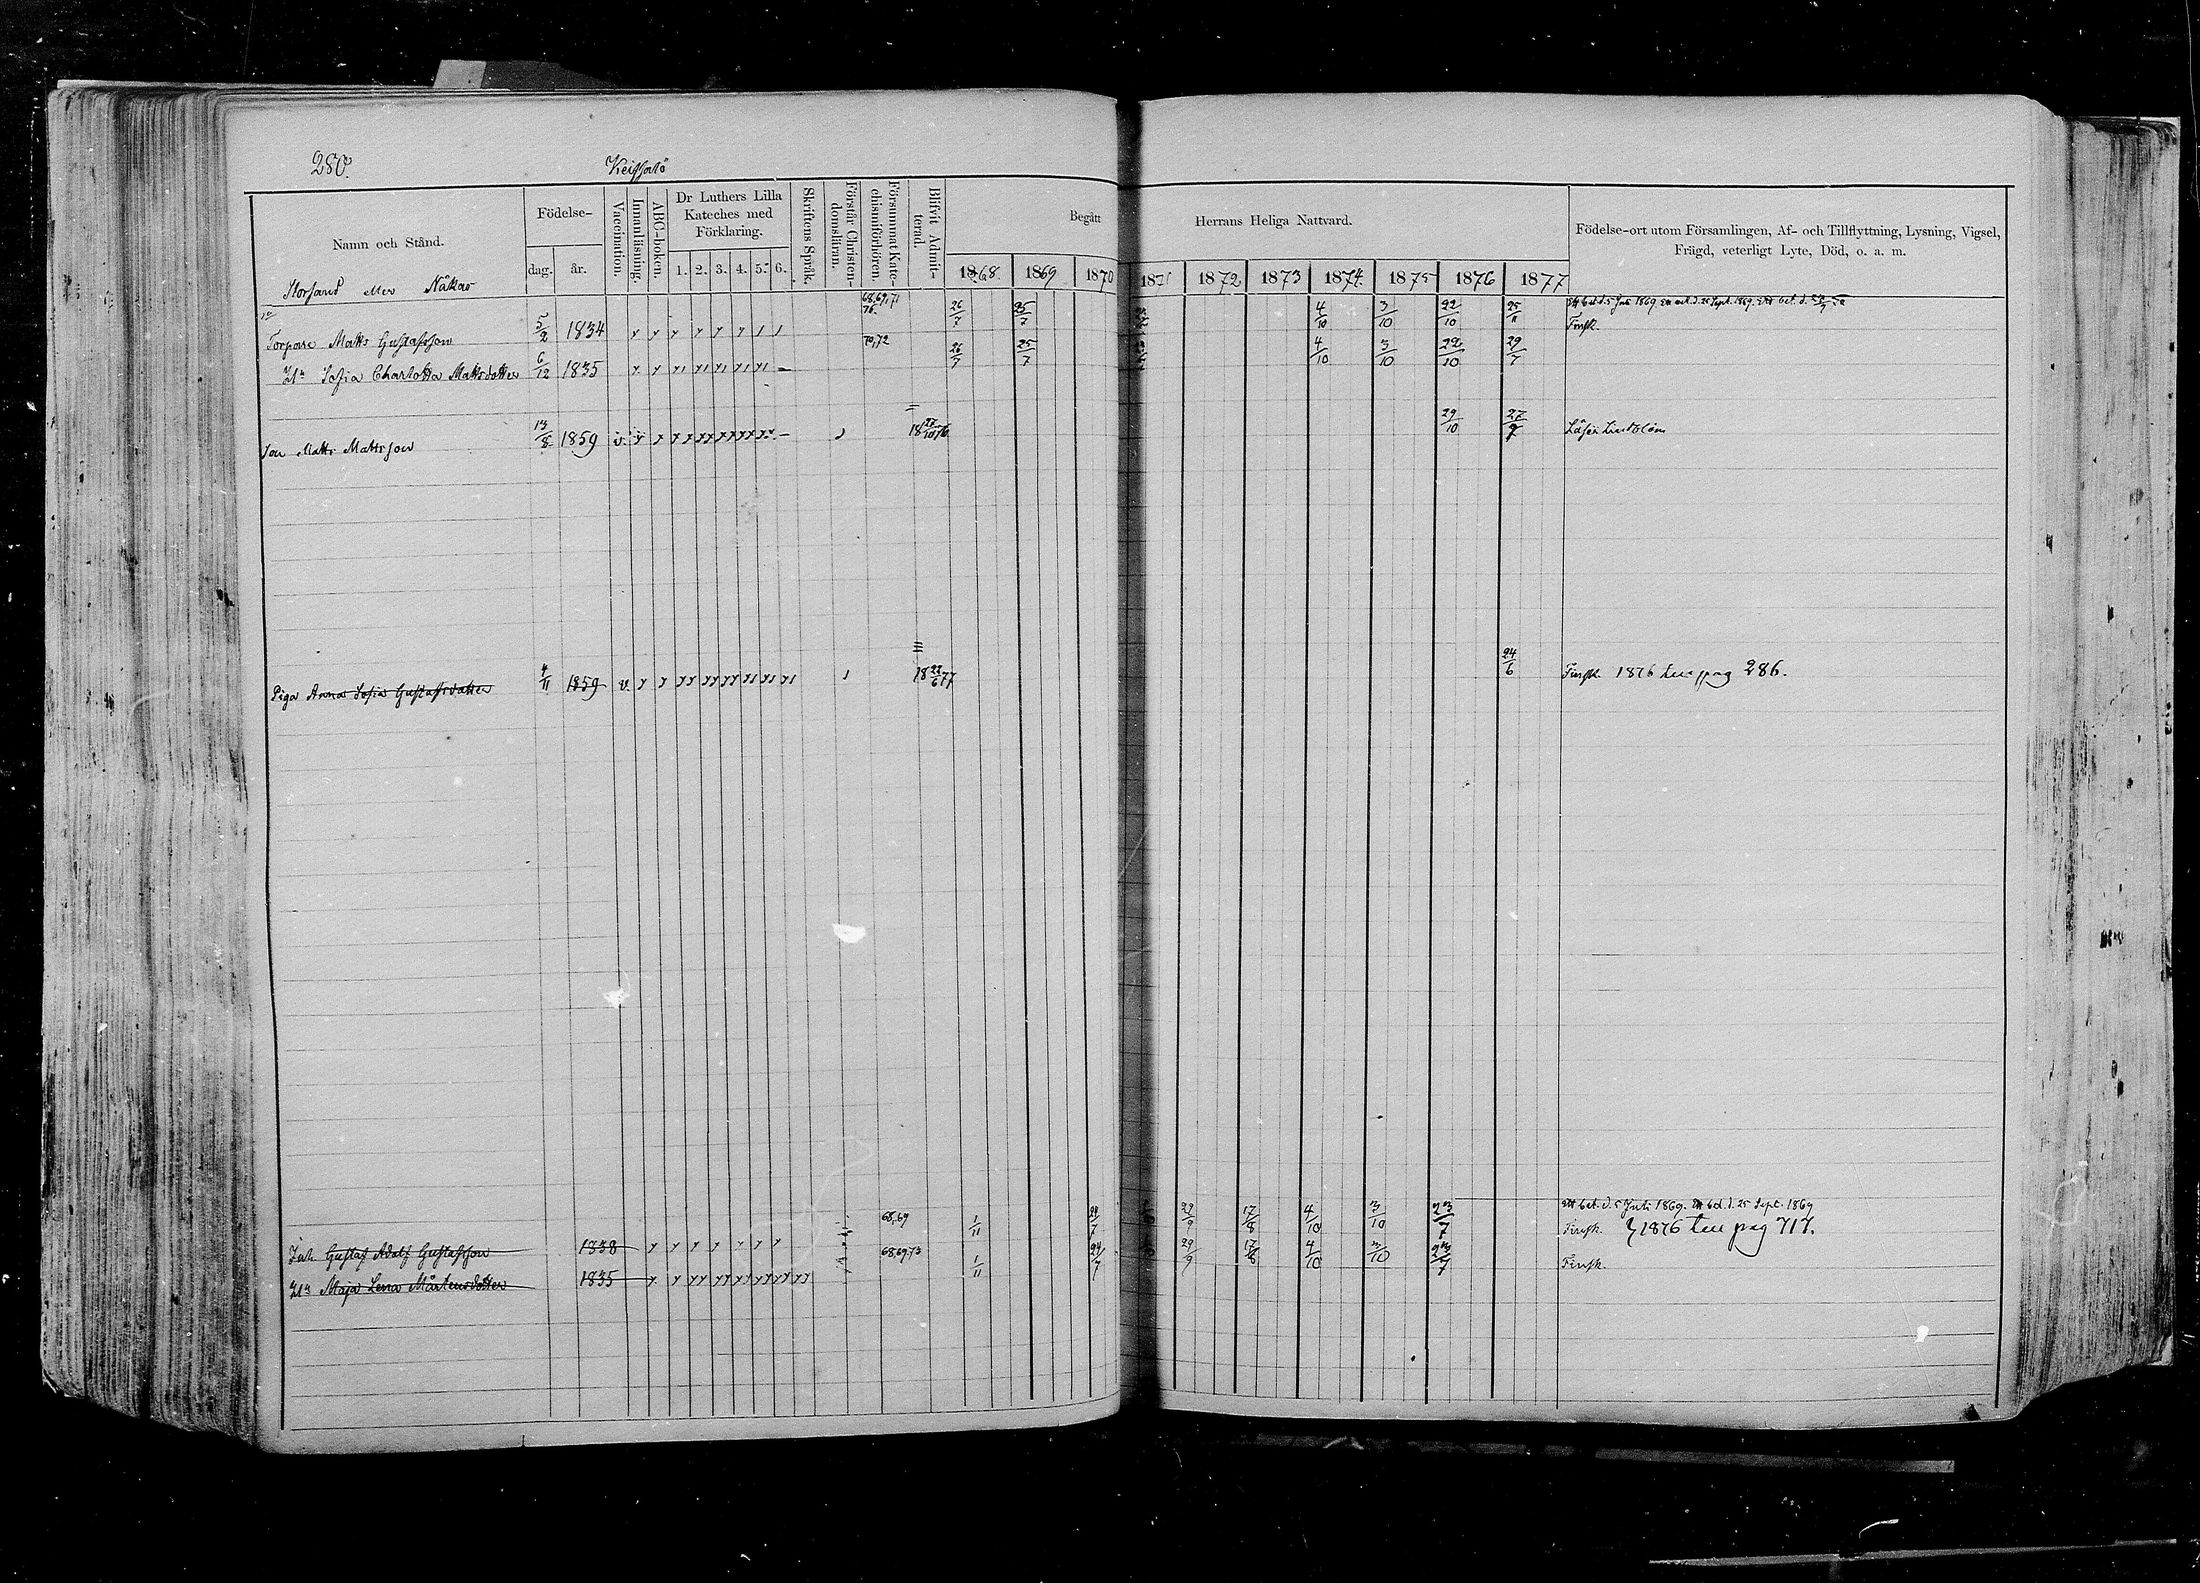 280.
Keistatö
Namn och Stånd.
Födelse-
dag.
år.
Vaccination.
Innanläsning.
ABC-boken.
Dr Luthers Lilla
Kateches med
Förklaring.
1. 2. 3. 4. 5. 6.
Skriftens Språk.
Förstår Christen-
domsläran.
Försummat Kate-
chismiförhören.
Blifvit Admit-
terad.
Begått Herrans Heliga Nattvard.
1868 1869 1870 1871 1872 1873 1874. 1875 1876 1877
Födelse-ort utom Församlingen, Af- och Tillflyttning, Lysning, Vigsel,
Frägd, veterligt Lyte, Död, o. a. m.
Storsand eller Nåkas
Torpare Matts Gustafsson 5/2 1834 68,69,71 76. 26/7 25/7 4/10 3/10 22/10 25/11 Finsk.
H:u Sofia Charlotta Mattsdotter 6/12 1835 70,72 26/7 25/7 4/10 3/10 22/10 29/7
Son Matts Mattsson 13/8 1859 v. 29/10 27/9
Piga Anna Sofia Gustafsdotter 4/11 1859 v. 18 22/6 77 24/6 Finsk. 1876 pag 286.
bet. d. 5 Juli 1869. bet. d. 25 Sept. 1869
Inh. Gustaf Adolf Gustafsson 1838 68,69 1/11 24/7 29/9 17/8 4/10 3/10 23/7 Finsk. } 1876 pag 717.
H:u Maja Lena Mårtensdotter 1835 68.69.73 1/11 24/7 29/9 17/8 4/10 3/10 23/7 Finsk.